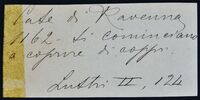 Vale di Ravenna
1162. Si cominciano
a coprire di coppi.
Lustri II, 124